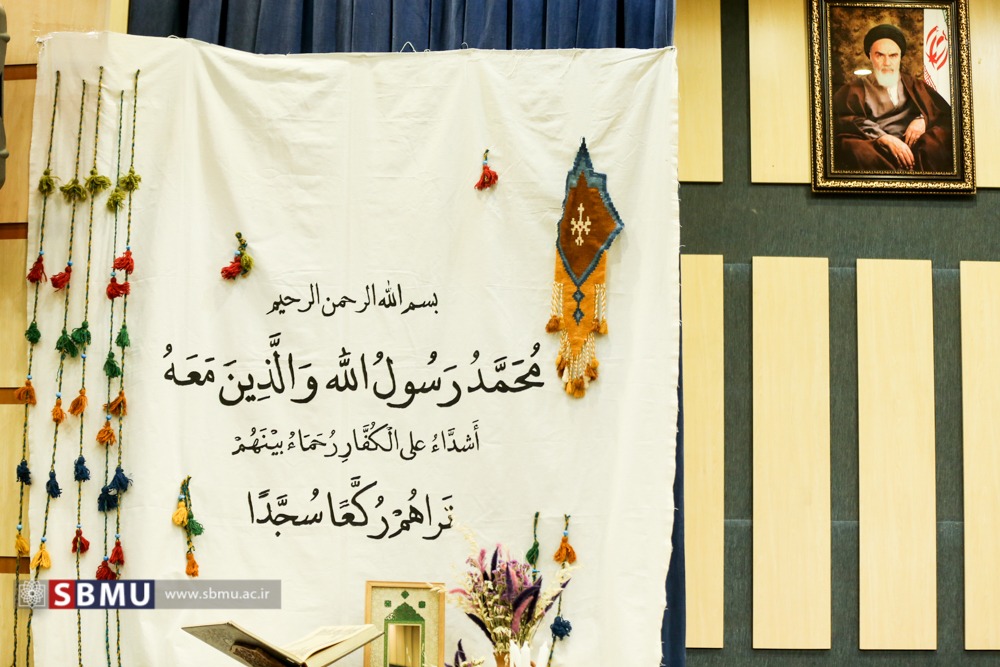 بسم الله الرحمن الرحیم
مُحَمَّدُ رَسُولُ الله وَالَّذِینَ مَعَهُ
أَشدَّاءُ علی الْکُفَّارِ رُحَمَاءُ بیْنَهُمْ
تَراهُمْ رُکَّعًا سُجَّدًا
SBMU www.sbmu.ac.ir